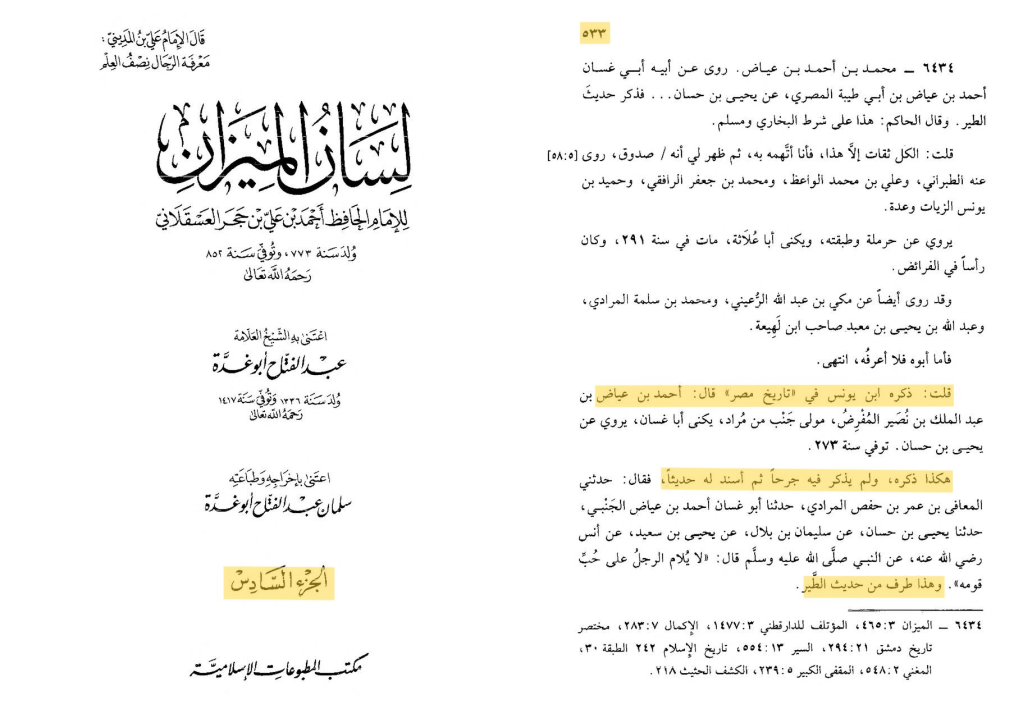 قَالَ الإمَامُ عَلِيّ بْنُ المَدِينِيّ :
مَعْرِفَة الرِّجَال نِصْفُ العِلْم
لِسَانُ المِيزَانِ
لِلإمَامِ الحَافِظِ أَحْمَد بْن عَلِيّ بْن حَجَر العَسْقَلَانِيّ
وُلِدَ سَنَة ٧٧٣، وَتُوفِّيَ سَنَة ٨٥٢
رَحِمَهُ اللَّه تَعَالَىٰ
اعْتَنَىٰ بِهِ الشَّيْخُ العَلّامَة
عَبد الفَتّاح أبُو غُدَّة
وُلِدَ سَنَة ١٣٣٦ وَتُوفِّيَ سَنَة ١٤١٧
رَحِمَهُ اللَّه تَعَالَىٰ
اعْتَنَىٰ بِإخْرَاجِهِ وَطِبَاعَتِهِ
سَلمَان عَبد الفَتّاح أبُو غُدَّة
الجُزءُ السَّادِسْ
مَكتَب المَطبُوعَاتِ الإسْلَامِيَّة
٥٣٣
٦٤٣٤ ــ محمد بن أحمد بن عياض. روى عن أبيه أبي غسان
أحمد بن عياض بن أبي طيبة المصري، عن يحيى بن حسان... فذكر حديثَ
الطير. وقال الحاكم: هذا على شرط البخاري ومسلم.
قلت: الكل ثقات إلَّا هذا، فأنا أتَّهمه به، ثم ظهر لي أنه / صدوق، روى [٥٨:٥]
عنه الطبراني، وعلي بن محمد الواعظ، ومحمد بن جعفر الرافقي، وحميد بن
يونس الزيات وعدة.
يروي عن حرملة وطبقته، ويكنى أبا عُلَاثة، مات في سنة ٢٩١، وكان
رأساً في الفرائض.
وقد روى أيضاً عن مكي بن عبد الله الرُّعيني، ومحمد بن سلمة المرادي،
وعبد الله بن يحيى بن معبد صاحب ابن لَهِيعة.
فأما أبوه فلا أعرفُه، انتهى.
قلت: ذكره ابن يونس في «تاريخ مصر» قال: أحمد بن عياض بن
عبد الملك بن نُصَير المُفْرِضُ، مولى جَنْب من مُراد، يكنى أبا غسان، يروي عن
يحيى بن حسان. توفي سنة ٢٧٣.
هكذا ذكره، ولم يذكر فيه جرحاً ثم أسند له حديثاً، فقال: حدثني
المعافى بن عمر بن حفص المرادي، حدثنا أبو غسان أحمد بن عياض الجَنْبي،
حدثنا يحيى بن حسان، عن سليمان بن بلال، عن يحيى بن سعيد، عن أنس
رضي الله عنه، عن النبي صلَّى الله عليه وسلَّم قال: «لا يُلام الرجلُ على حُبِّ
قومه». وهذا طرف من حديث الطَّير.
٦٤٣٤ ــ الميزان ٣:٤٦٥، المؤتلف للدارقطني ٣:١٤٧٧، الإكمال ٧:٢٨٣، مختصر
تاريخ دمشق ٢١:٢٩٤، السير ١٣:٥٥٤، تاريخ الإسلام ٢٤٢ الطبقة ٣٠،
المغني ٢:٥٤٨، المقفى الكبير ٥:٢٣٩، الكشف الحثيث ٢١٨.